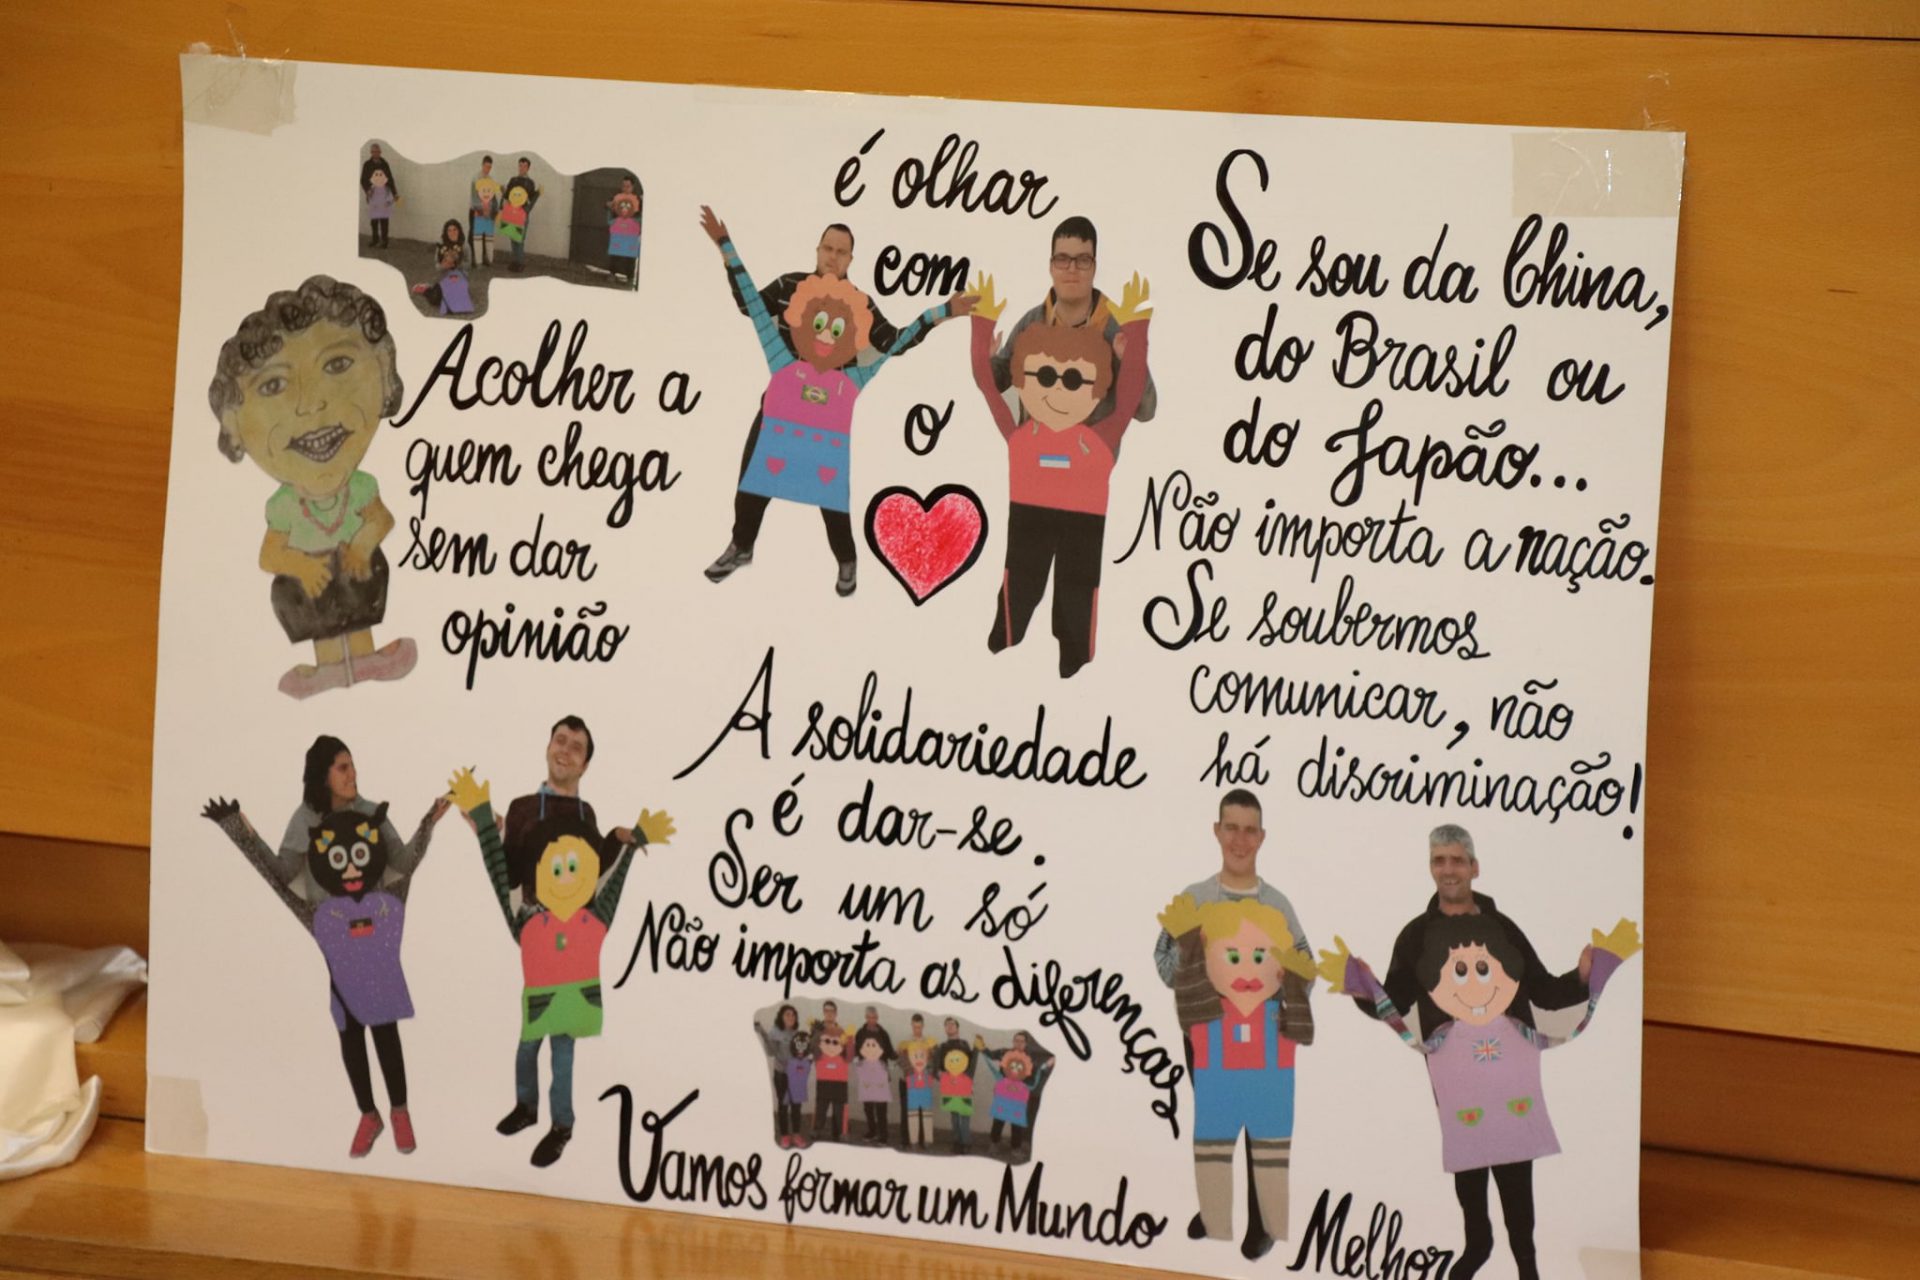 Acolher a
quem chega
sem dar
opinião
é olhar
com
o
Se sou da China,
do Brasil ou
do Japão...
Não importa a nação.
Se soubermos
comunicar, não
há discriminação!
A solidariedade
é dar-se.
Ser um só
Não importa as diferenças
Vamos formar um Mundo
Melhor